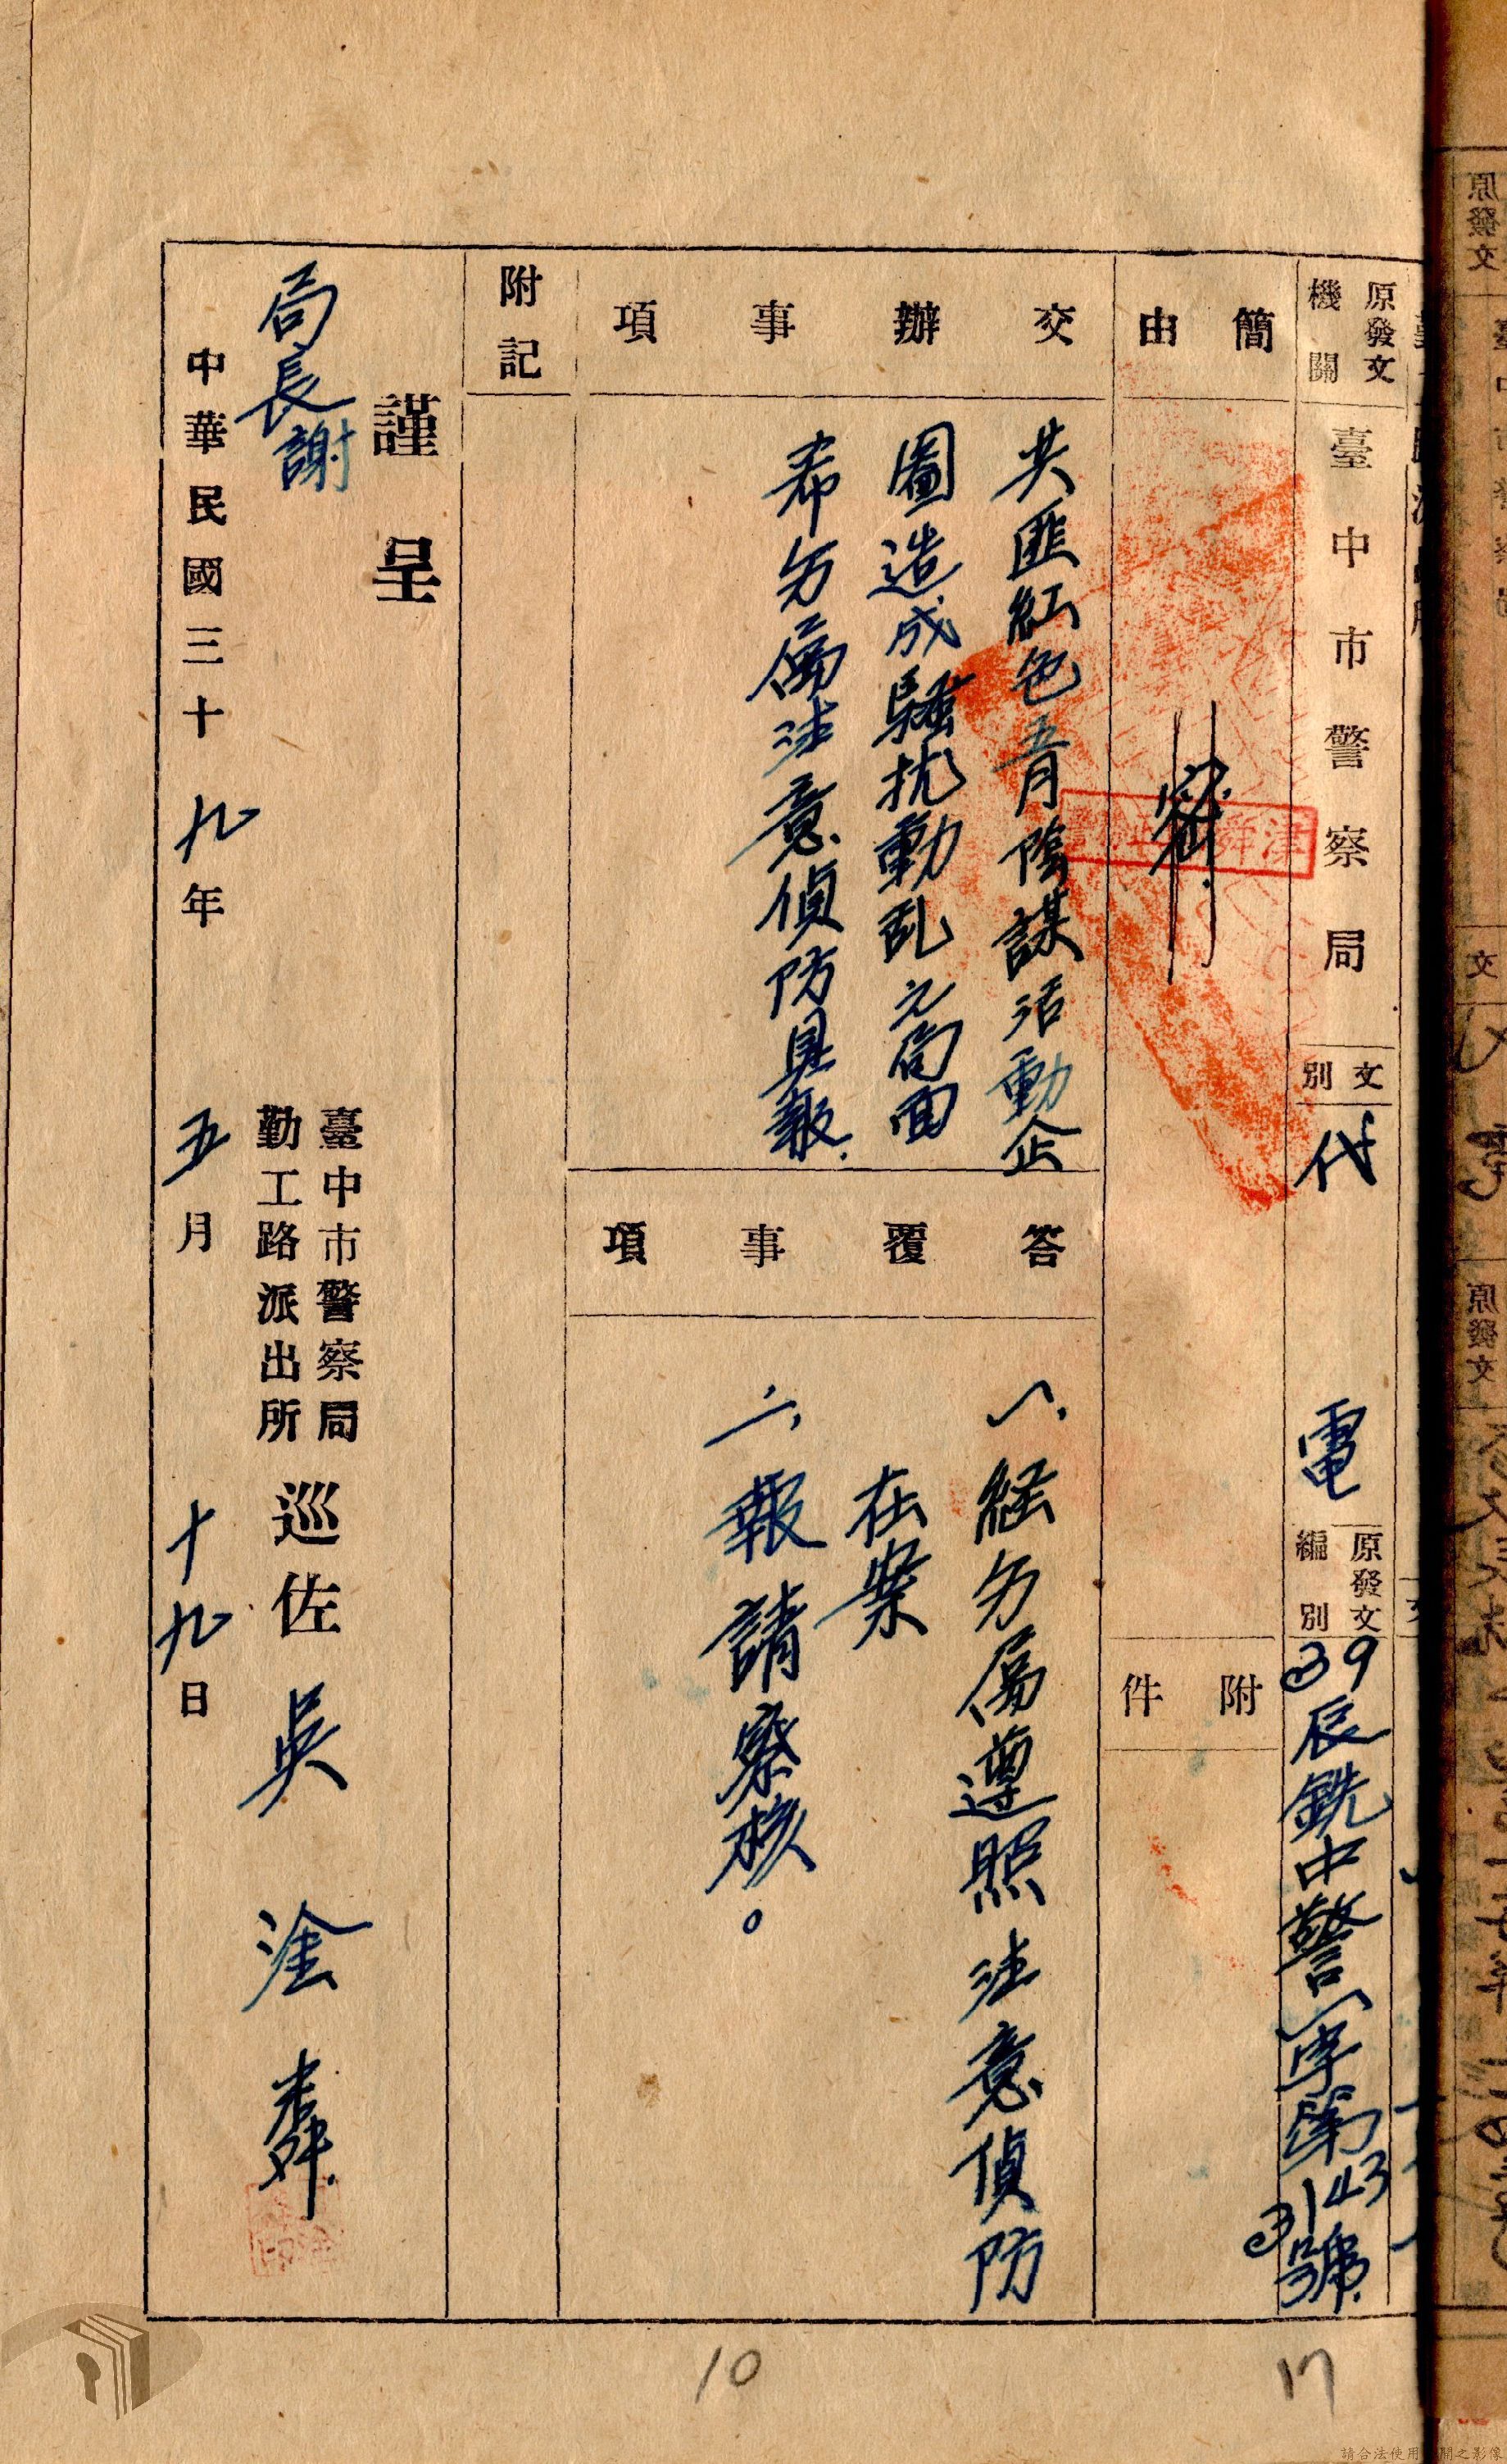 原發文
機關
臺中市警察局
文別
代電
原發文
編別
39辰銑中警(一)字第3143號
簡由
密
附件
交辦事項
共匪紅色五月陰謀活動企
圖造成騷扰動乱之局面
希勿屬注意偵防具報.
答覆事項
一、經勿屬遵照注意偵防
在案
二、報請察核。
附記
謹呈
局長謝
臺中市警察局
勤工路派出所
巡佐吳淦舞
中華民國三十九年五月十九日
10
17
請合法使用
開之影像